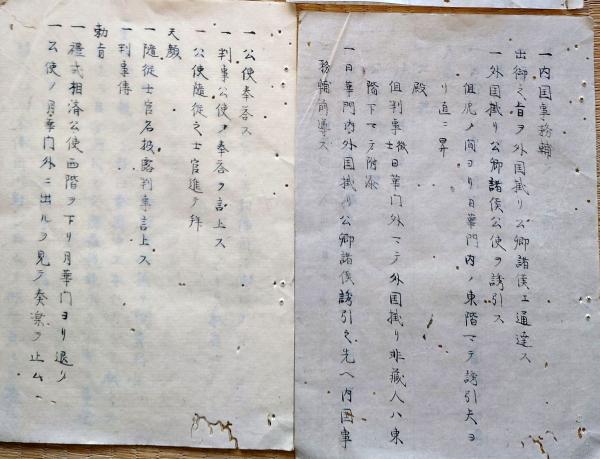 一内国事務輔
出御之旨ヲ外国掛リ公卿諸侯エ通達ス
一外国掛リ公卿諸侯公使ヲ誘引ス
但虎ノ間ヨリ日華門内ノ東階マテ誘引夫ヨ
リ直ニ昇
殿
但判事日華門外マテ外国掛リ非蔵人ハ東
階下マテ附添
一日華門内外国掛リ公卿諸侯誘引之先ヘ内国事
務輔前導ス
一公使奉答ス
一判事公使ノ奉答ヲ言上ス
一公使随従之士官進テ拝
天顔
一随従士官名披露判事言上ス
一判事傳
勅旨
一禮式相済公使西階ヲ下リ月華门ヨリ退ク
一公使ノ月華门外ニ出ルヲ見テ奏楽ヲ止ム